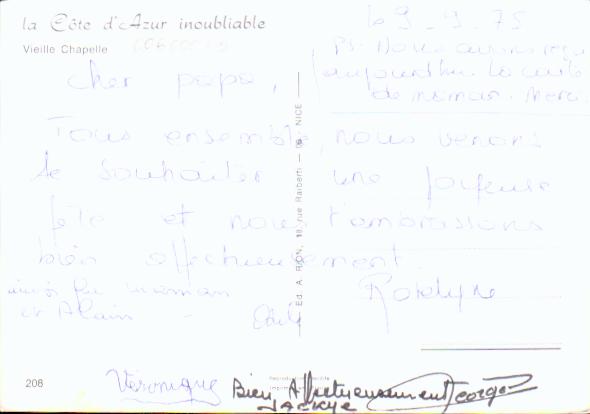 la Côte d'Azur inoubliable
Vieille Chapelle
le 9-9-75
PS. Nous avons reçu
aujourd'hui la carte
de maman. Merci.
cher papa,
Tous ensemble, nous venons
te souhaiter une joyeuse
fête et nous t'embrassons
bien affectueusement.
ainsi que maman
et Alain -
Roselyne
Ed. A. RION, 18, rue Raiberti - NICE
208
Véronique
Bien Affectueusement Georges
JACKYE